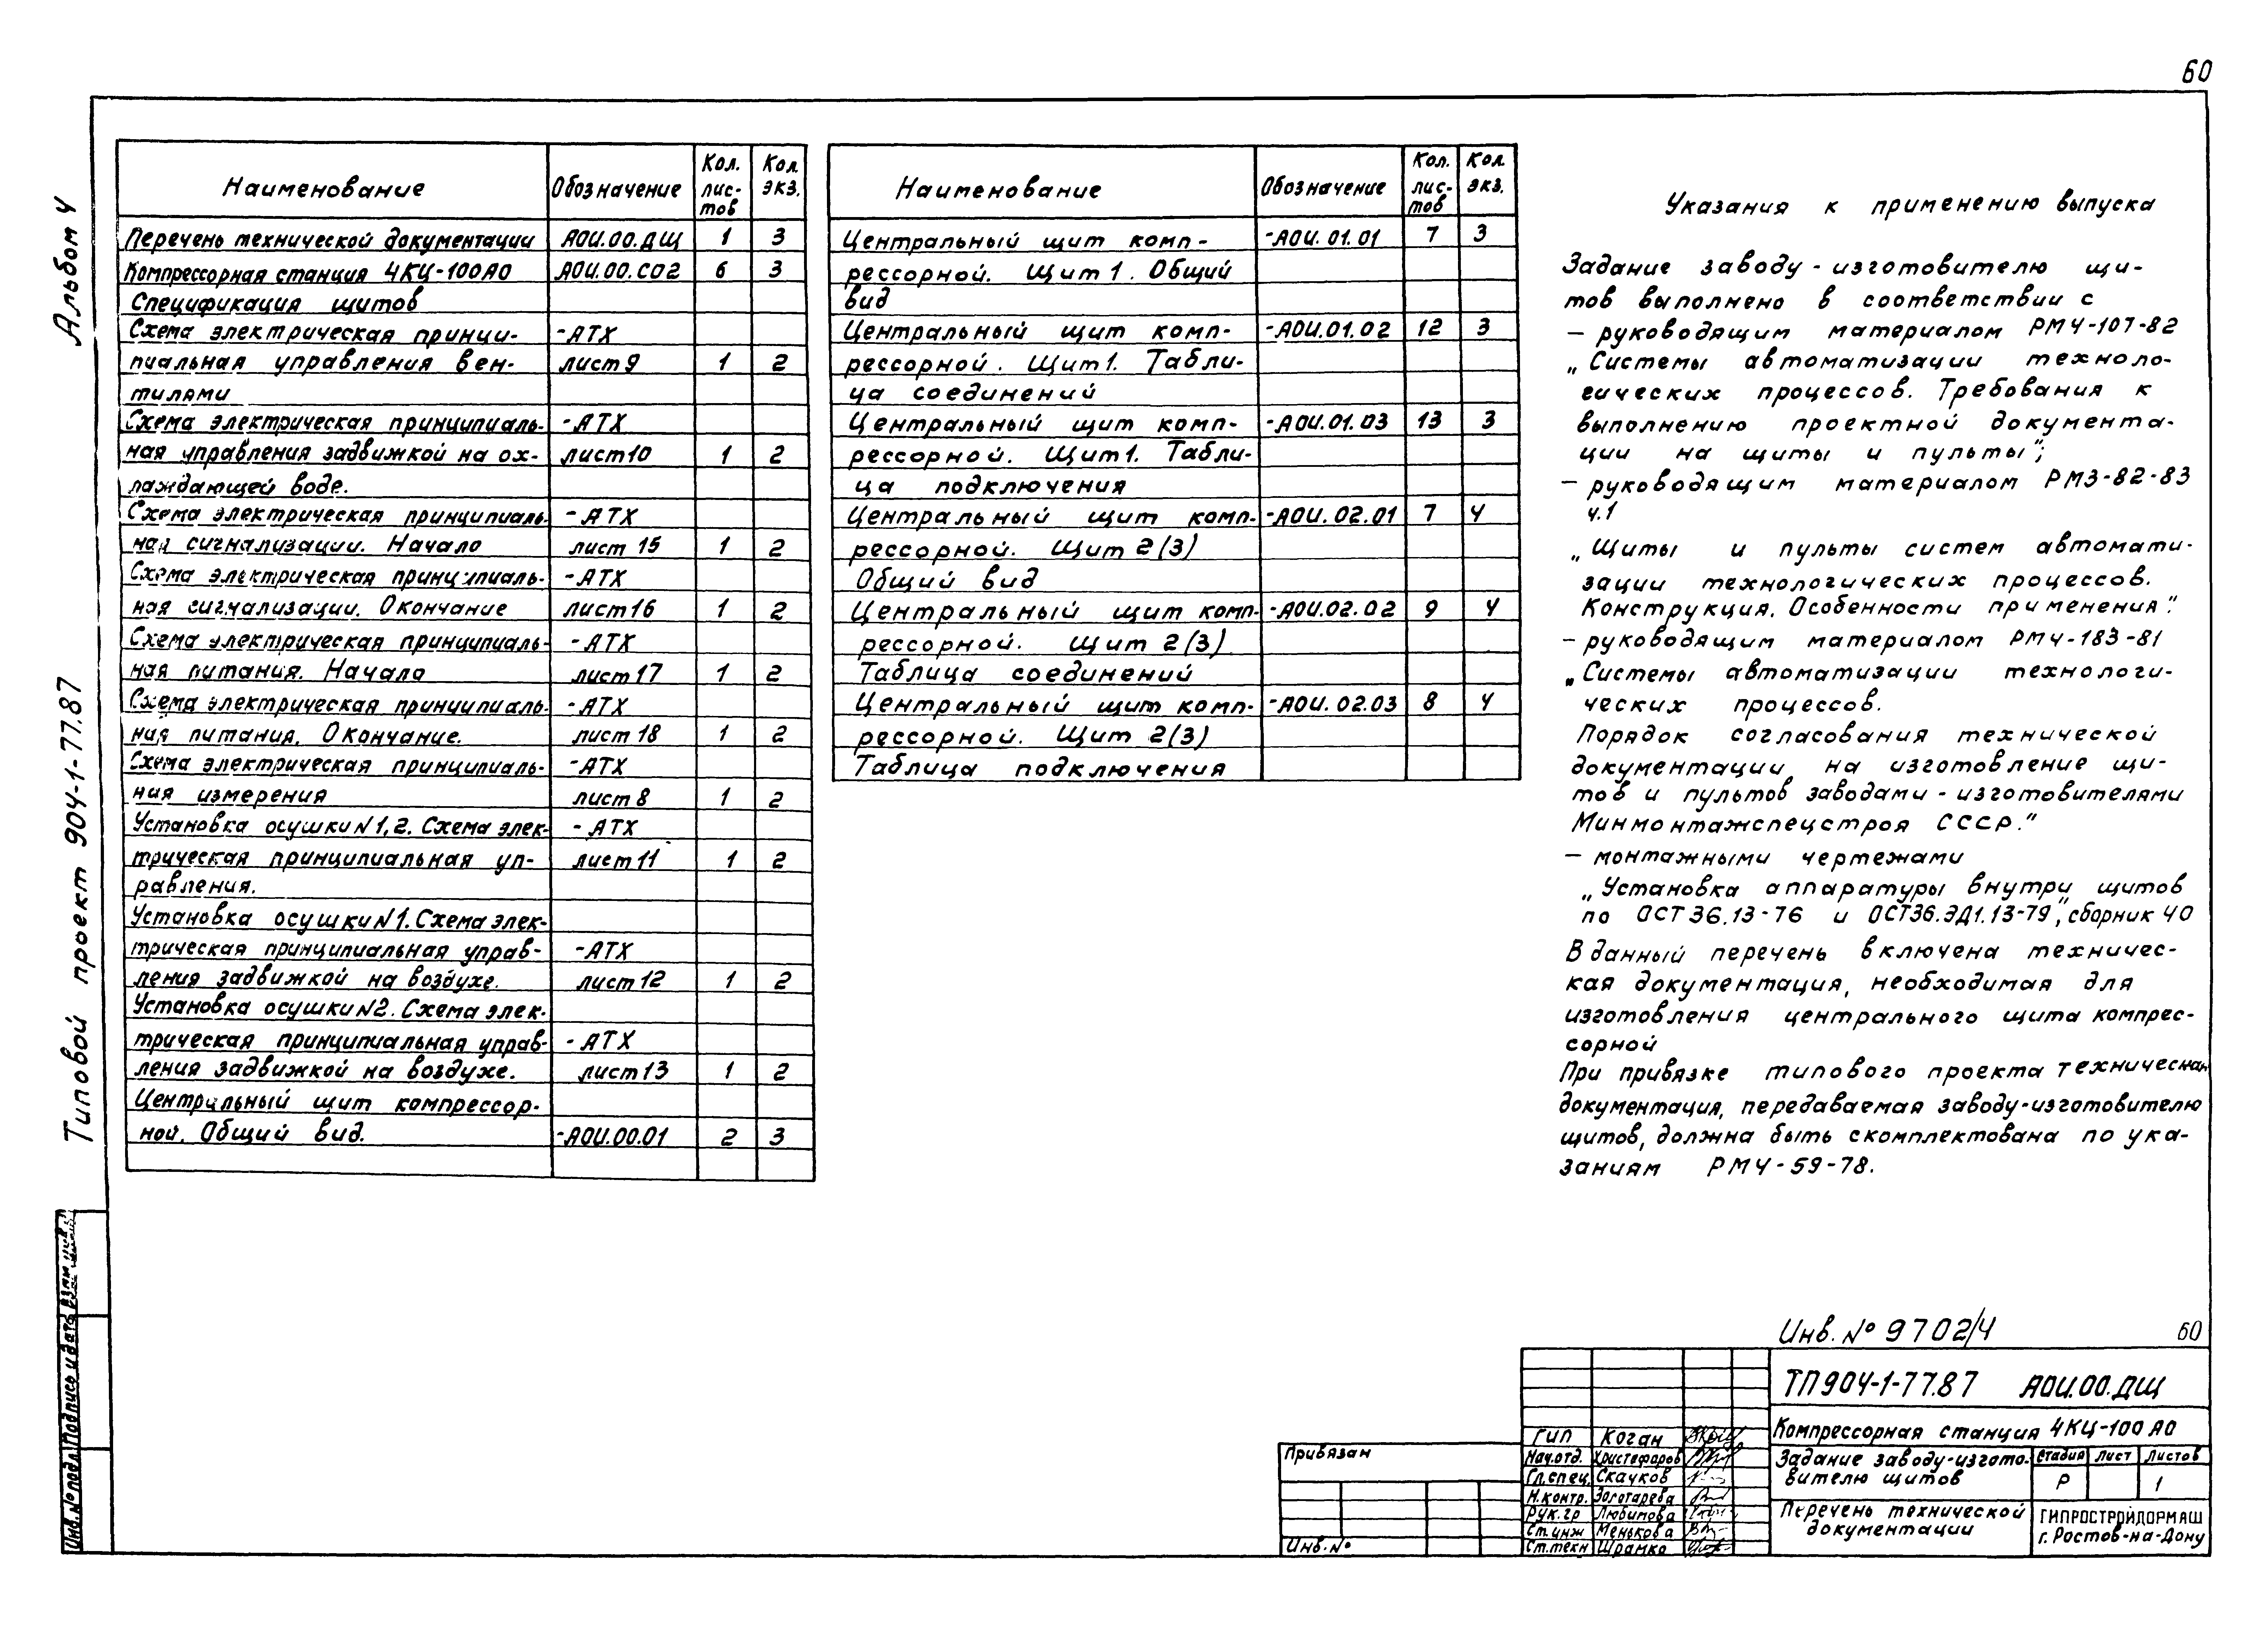 60
Альбом 4
Типовой проект 904-1-77.87
Наименование Обозначение Кол. листов Кол. экз.
Перечень технической документации АОИ.00.ДЩ 1 3
Компрессорная станция 4КЦ-100АО АОИ.00.СО2 6 3
Спецификация щитов
Схема электрическая принци- -АТХ
пиальная управления вен- лист 9 1 2
тилями
Схема электрическая принципиаль- -АТХ
ная управления задвижкой на ох- лист 10 1 2
лаждающей воде.
Схема электрическая принципиаль- -АТХ
ная сигнализации. Начало лист 15 1 2
Схема электрическая принципиаль- -АТХ
ная сигнализации. Окончание лист 16 1 2
Схема электрическая принципиаль- -АТХ
ная питания. Начало лист 17 1 2
Схема электрическая принципиаль- -АТХ
ная питания. Окончание. лист 18 1 2
Схема электрическая принципиаль- -АТХ
ния измерения лист 8 1 2
Установка осушки N1,2. Схема элек- -АТХ
трическая принципиальная уп- лист 11 1 2
равления.
Установка осушки N1. Схема элек-
трическая принципиальная управ- -АТХ
ления задвижкой на воздухе. лист 12 1 2
Установка осушки N2. Схема элек-
трическая принципиальная управ- -АТХ
ления задвижкой на воздухе. лист 13 1 2
Центральный щит компрессор-
ной. Общий вид. -АОИ.00.01 2 3
Наименование Обозначение Кол. листов Кол. экз.
Центральный щит комп- -АОИ.01.01 7 3
рессорной. Щит 1. Общий
вид
Центральный щит комп- -АОИ.01.02 12 3
рессорной. Щит 1. Табли-
ца соединений
Центральный щит комп- -АОИ.01.03 13 3
рессорной. Щит 1. Табли-
ца подключения
Центральный щит комп- -АОИ.02.01 7 4
рессорной. Щит 2(3)
Общий вид
Центральный щит комп- -АОИ.02.02 9 4
рессорной. Щит 2(3)
Таблица соединений
Центральный щит комп- -АОИ.02.03 8 4
рессорной. Щит 2(3)
Таблица подключения
Указания к применению выпуска
Задание заводу-изготовителю щи-
тов выполнено в соответствии с
– руководящим материалом РМ4-107-82
„Системы автоматизации техноло-
гических процессов. Требования к
выполнению проектной документа-
ции на щиты и пульты";
– руководящим материалом РМ3-82-83
ч.1
„Щиты и пульты систем автомати-
зации технологических процессов.
Конструкция. Особенности применения".
– руководящим материалом РМ4-183-81
„Системы автоматизации технологи-
ческих процессов.
Порядок согласования технической
документации на изготовление щи-
тов и пультов заводами-изготовителями
Минмонтажспецстроя СССР."
– монтажными чертежами
„Установка аппаратуры внутри щитов
по ОСТ 36.13-76 и ОСТ36.ЭД1.13-79", сборник 40
В данный перечень включена техничес-
кая документация, необходимая для
изготовления центрального щита компрес-
сорной
При привязке типового проекта техническая
документация, передаваемая заводу-изготовителю
щитов, должна быть скомплектована по ука-
заниям РМ4-59-78.
Инв. № 9702/4 60
ТП904-1-77.87 АОИ.00.ДЩ
Компрессорная станция 4КЦ-100АО
Задание заводу-изгото-
вителю щитов
Стадия Лист Листов
Р 1
Перечень технической
документации
ГИПРОСТРОЙДОРМАШ
г. Ростов-на-Дону
ГИП Коган
Нач.отд. Христофоров
Гл.спец. Скачков
Н.контр. Золотарева
Рук.гр Любимова
Ст.инж Менькова
Ст.техн Шрамко
Привязан
Инв.№
Инв.№подл Подпись и дата Взам.инв.